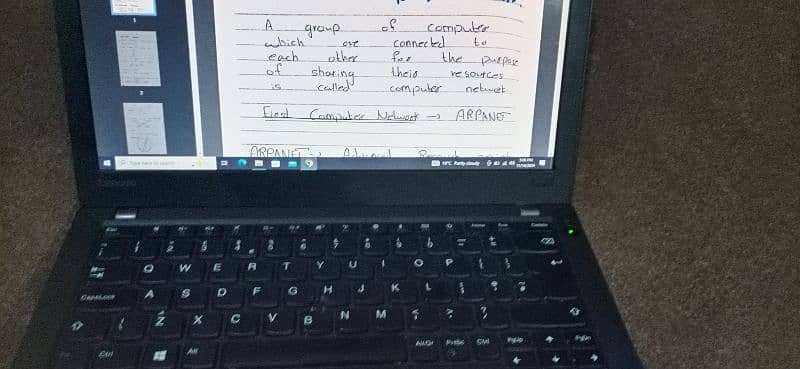 A group of computer
which are connected to
each other for the purpose
of sharing their resources
is called computer network
First Computer Network → ARPANET
ARPANET
Type here to search
19°C Partly cloudy
Q W E R T Y U I O P
CapsLock A S D F G H J K L
Z X C V B N M
Ctrl Alt AltGr PrtSc Ctrl PgUp PgDn